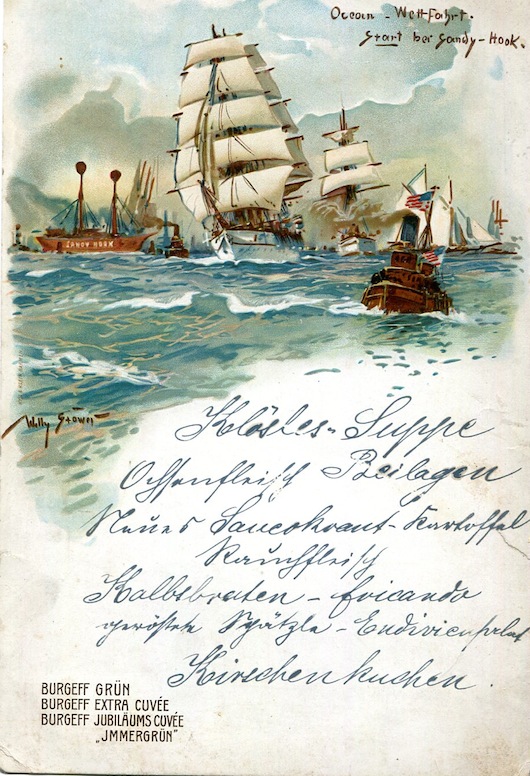 Ocean - Wettfahrt.
Start bei Sandy-Hook.
SANDY HOOK
Willy Stöwer
Klösles-Suppe
Ochsenfleisch Beilagen
Neues Sauerkraut-Kartoffel
Rauchfleisch
Kalbsbraten - fricando
geröstete Spätzle - Endiviensalat
Kirschenkuchen.
BURGEFF GRÜN
BURGEFF EXTRA CUVÉE
BURGEFF JUBILÄUMS CUVÉE
„JMMERGRÜN"